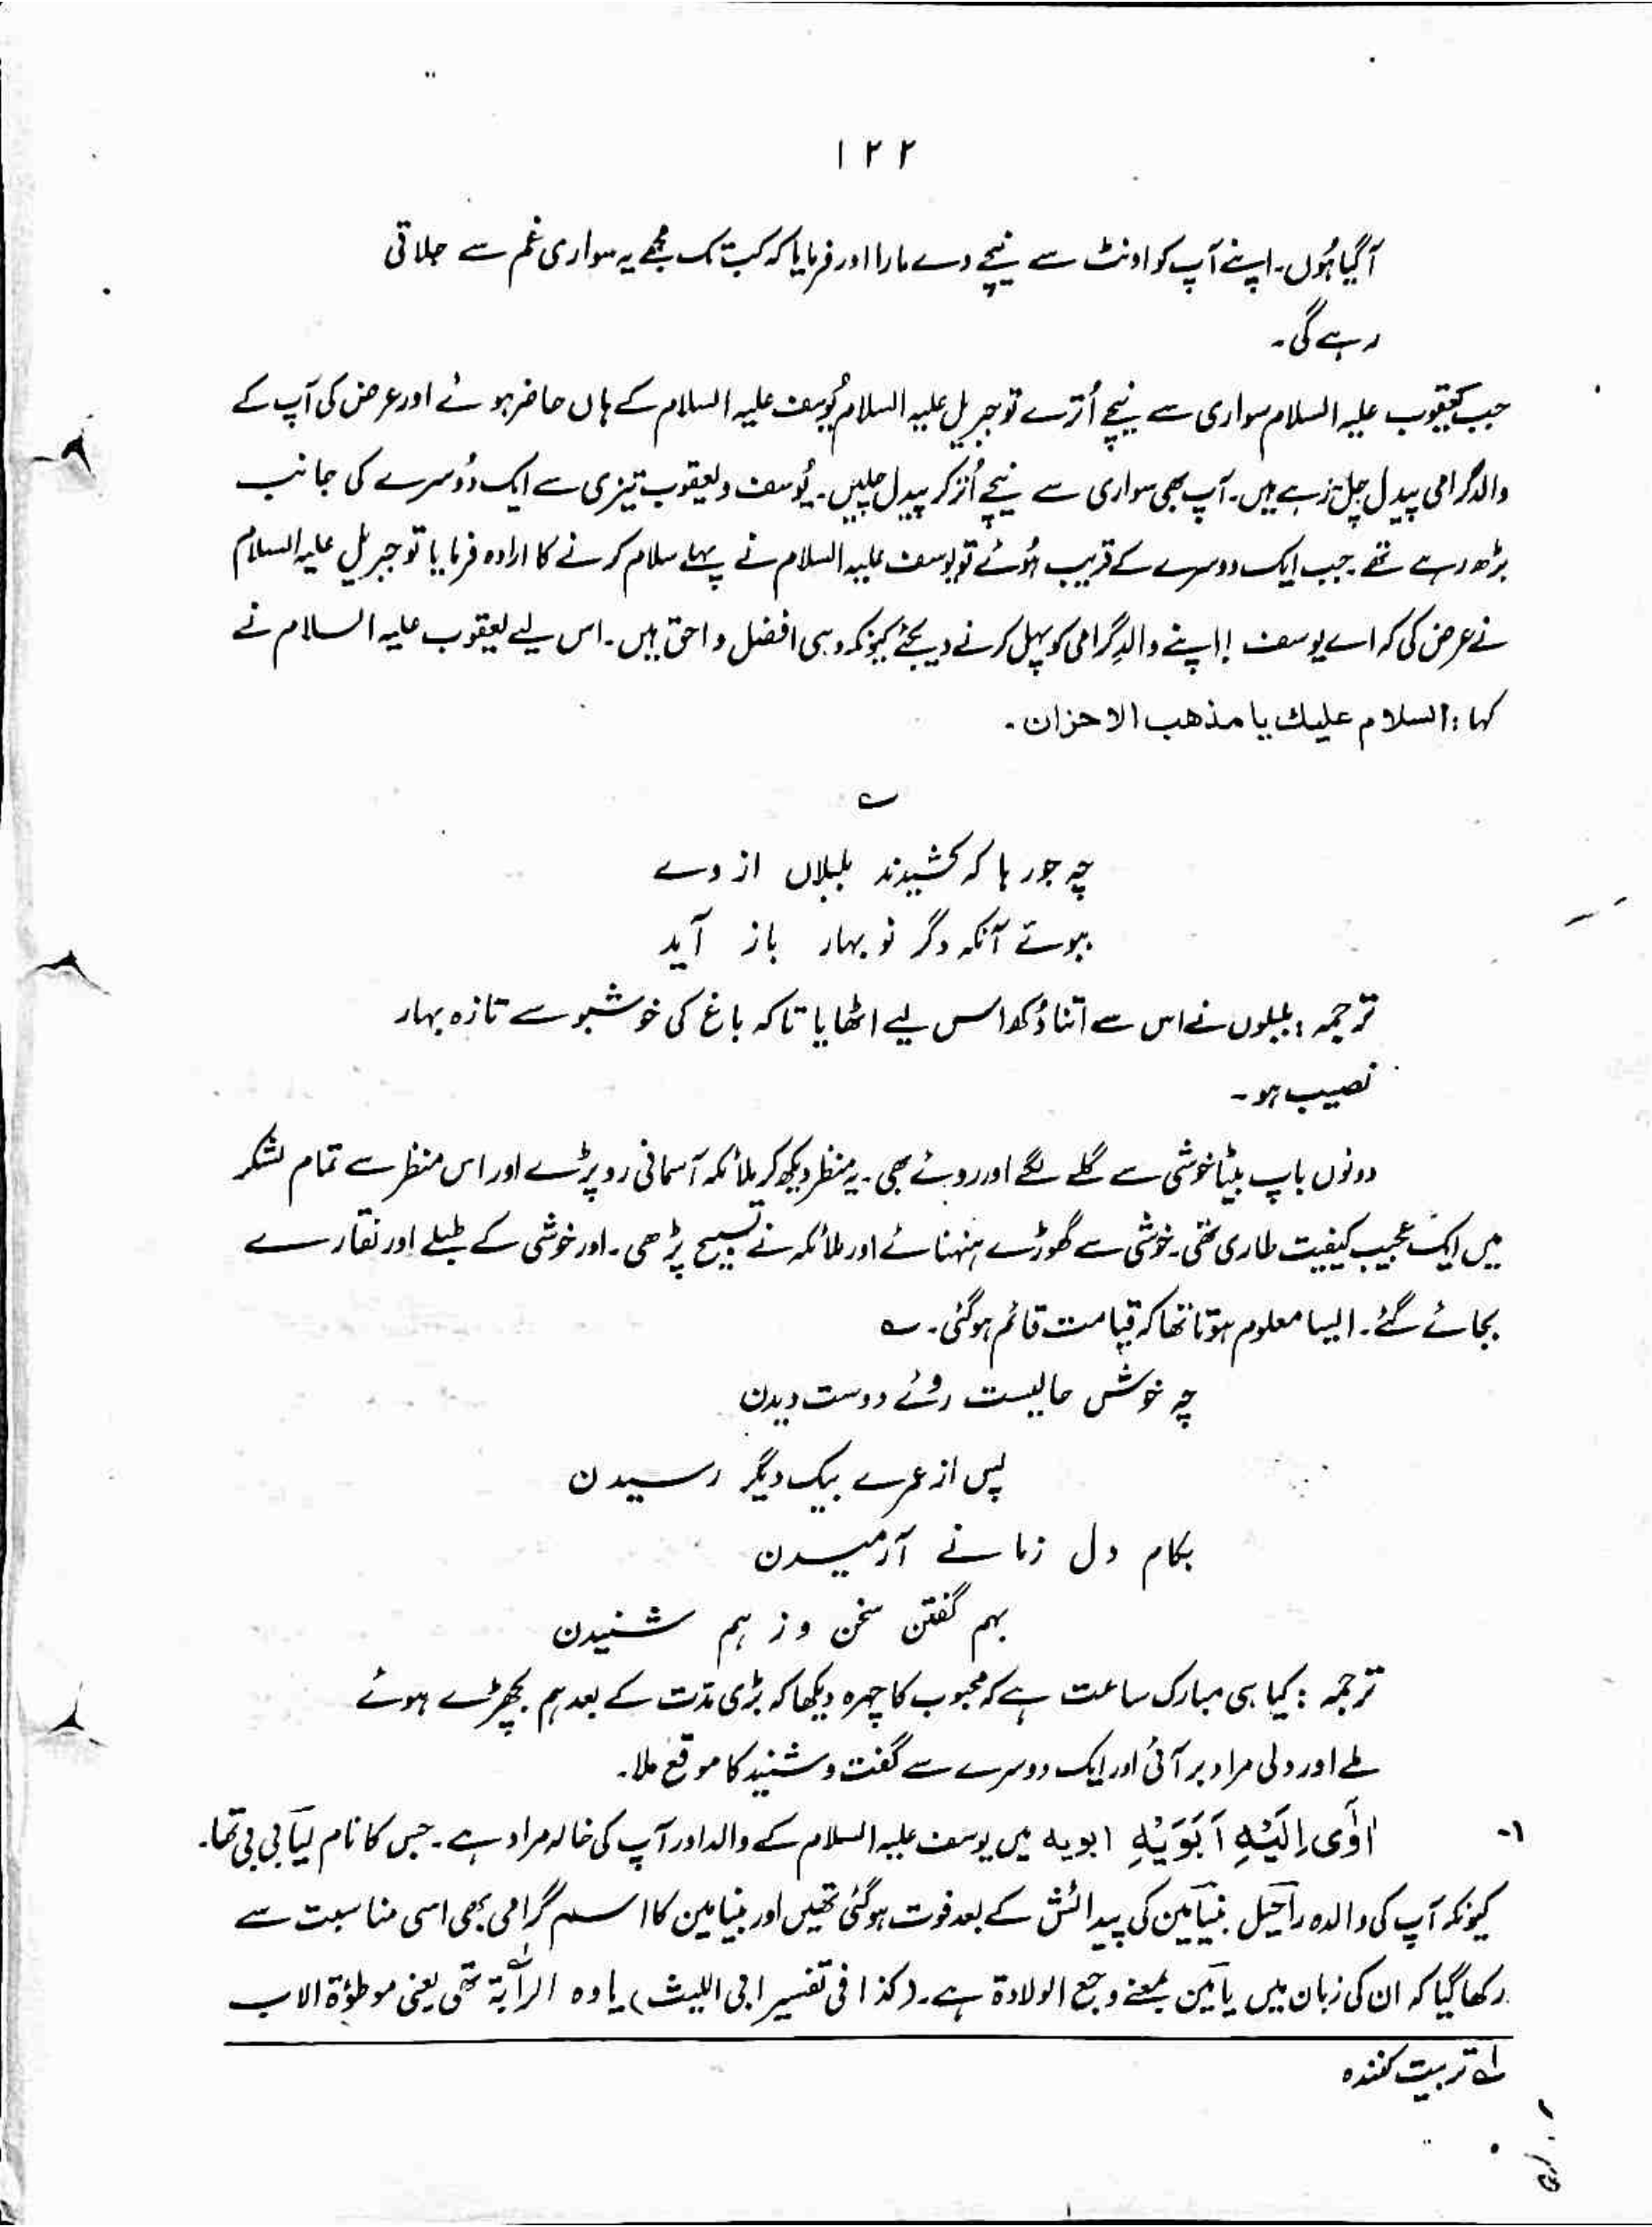 ۱۲۲
آ گیا ہُوں۔ اپنے آپ کو اونٹ سے نیچے دے مارا اور فرمایا کہ کب تک مجھے یہ سواری غم سے جلاتی
رہے گی۔
جب یعقوب علیہ السلام سواری سے نیچے اُترے تو جبریل علیہ السلام یُوسف علیہ السلام کے ہاں حاضر ہوئے اور عرض کی آپ کے
والد گرامی پیدل چل رہے ہیں۔ آپ بھی سواری سے نیچے اُتر کر پیدل چلیں۔ یُوسف و یعقوب تیزی سے ایک دُوسرے کی جانب
بڑھ رہے تھے۔ جب ایک دوسرے کے قریب ہُوئے تو یوسف علیہ السلام نے پہلے سلام کرنے کا ارادہ فرمایا تو جبریل علیہ السلام
نے عرض کی کہ اے یوسف! اپنے والدِ گرامی کو پہل کرنے دیجئے کیونکہ وہی افضل و احق ہیں۔ اس لیے یعقوب علیہ السلام نے
کہا: السلام علیك یا مذھب الاحزان۔
؎
چہ جورہا کہ کشیدند بلبلاں از دے
ببوئے آنکہ دگر نو بہار باز آید
ترجمہ: بلبلوں نے اس سے اتنا دُکھ اس لیے اٹھایا تاکہ باغ کی خوشبو سے تازہ بہار
نصیب ہو۔
دونوں باپ بیٹا خوشی سے گلے لگے اور روئے بھی۔ یہ منظر دیکھ کر ملائکہ آسمانی رو پڑے اور اس منظر سے تمام لشکر
میں ایک عجیب کیفیت طاری تھی۔ خوشی سے گھوڑے ہنہنائے اور ملائکہ نے تسبیح پڑھی۔ اور خوشی کے طبلے اور نقارے
بجائے گئے۔ ایسا معلوم ہوتا تھا کہ قیامت قائم ہوگئی۔ ؎
چہ خوش حالیست روئے دوست دیدن
پس از عمرے بیک دیگر رسیدن
بکام دل زمانے آرمیدن
بہم گفتن سخن وز ہم شنیدن
ترجمہ: کیا ہی مبارک ساعت ہے کہ محبوب کا چہرہ دیکھا کہ بڑی مدّت کے بعد ہم بچھڑے ہوئے
ملے اور دلی مراد بر آئی اور ایک دوسرے سے گفت و شنید کا موقع ملا۔
۱- اٰوٰٓى اِلَيْهِ اَبَوَيْهِ ابویہ میں یوسف علیہ السلام کے والد اور آپ کی خالہ مراد ہے۔ جس کا نام لیّا بی بی تھا۔
کیونکہ آپ کی والدہ راحیل بنیامین کی پیدائش کے بعد فوت ہو گئی تھیں اور بنیامین کا اسم گرامی بھی اسی مناسبت سے
رکھا گیا کہ ان کی زبان میں یامین بمعنے وجع الولادۃ ہے۔ (کذا فی تفسیر ابی اللیث) یا وہ الرآبۃ لہ تھی یعنی موطؤۃ الاب
لہ تربیت کنندہ